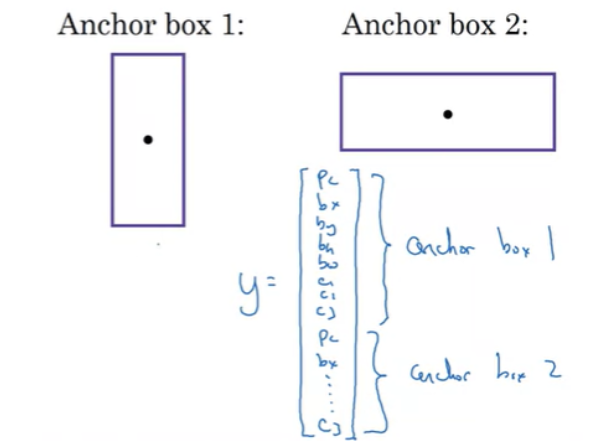 Anchor box 1:
Anchor box 2:
y =
pc
bx
by
bh
bw
c1
c1
c3
pc
bx
⋮
c3
anchor box 1
anchor box 2